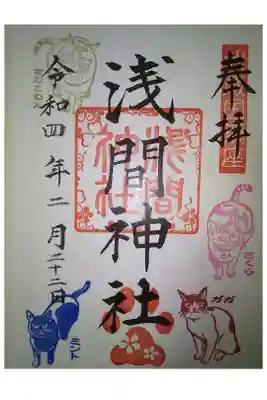 奉拝
浅間神社
浅間神社
令和四年二月二十二日
さくら
ガガ
ミント